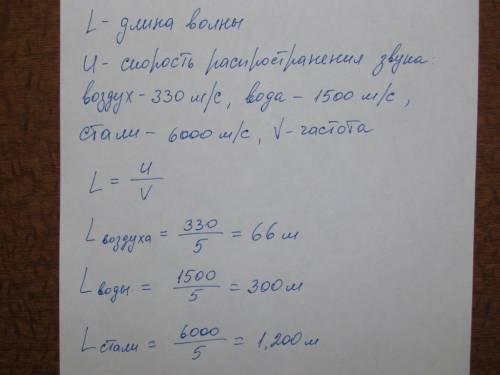 L - длина волны
U - скорость распространения звука:
воздух - 330 м/с, вода - 1500 м/с,
стали - 6000 м/с, V - частота
L = U/V
L воздуха = 330/5 = 66 м
L воды = 1500/5 = 300 м
L стали = 6000/5 = 1,200 м